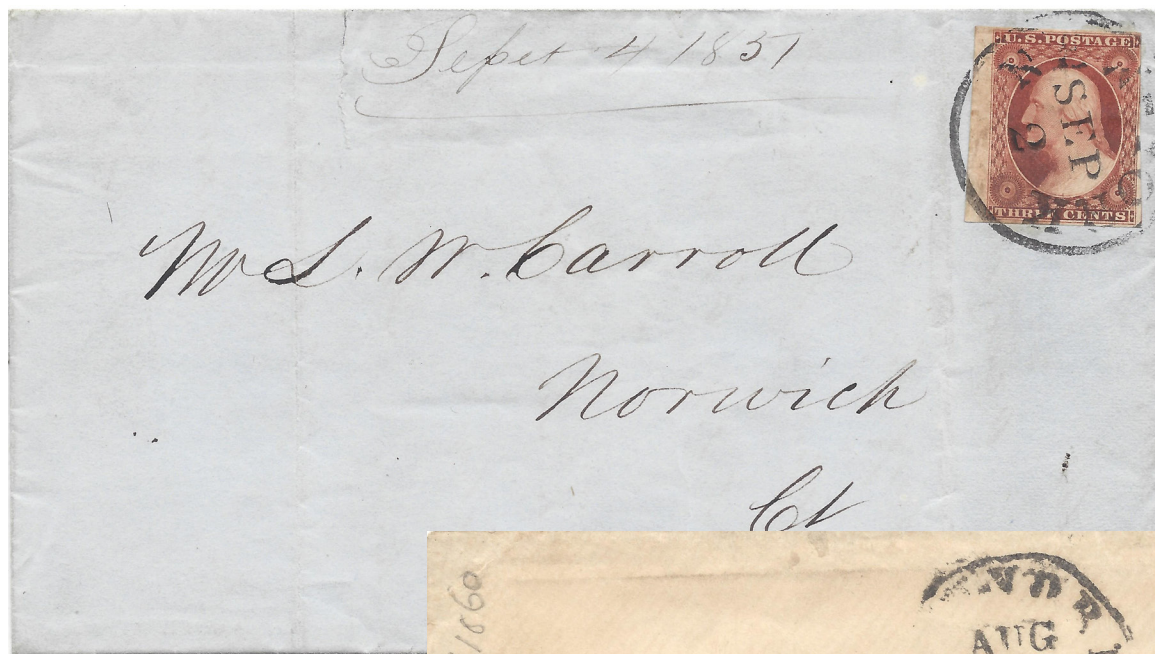 Sepet 4 1851
U.S. POSTAGE
NEW
SEP
THREE CENTS
Mr L. W. Carroll
Norwich
Ct
1860
AUG